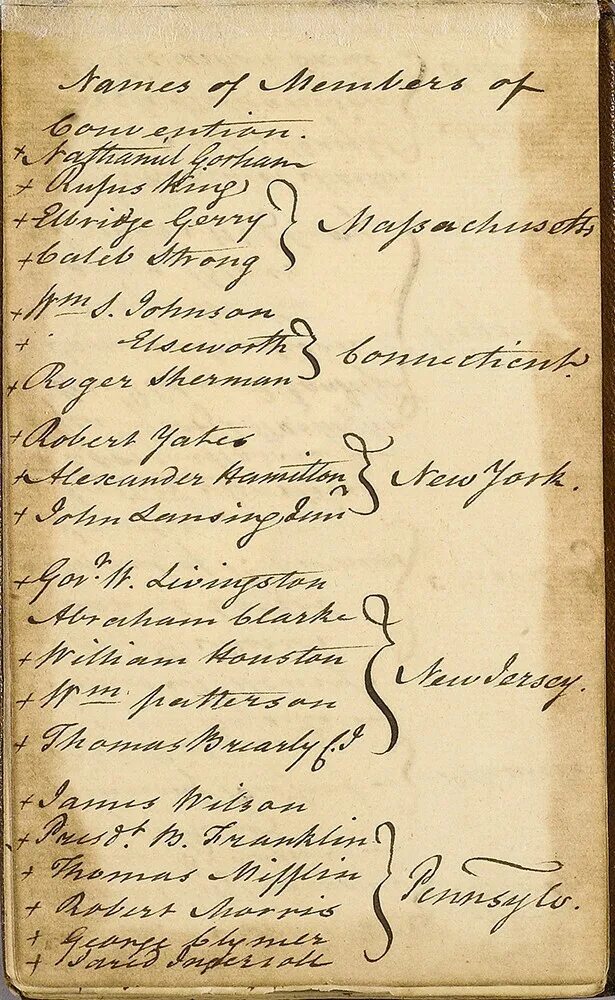 Names of Members of
Convention.
+ Nathaniel Gorham
+ Rufus King
+ Elbridge Gerry } Massachusetts
+ Caleb Strong
+ Wm S. Johnson
+ Elseworth } Connecticut.
+ Roger Sherman
+ Robert Yates
+ Alexander Hamilton } New York.
+ John Lansing Junr
+ Govr. W. Livingston
Abraham Clarke
+ William Houston } New Jersey.
+ Wm patterson
+ Thomas Brearly C.J
+ James Wilson
+ Presdt. B. Franklin
+ Thomas Mifflin } Pennsylv.
+ Robert Morris
+ George Clymer
+ Jared Ingersoll